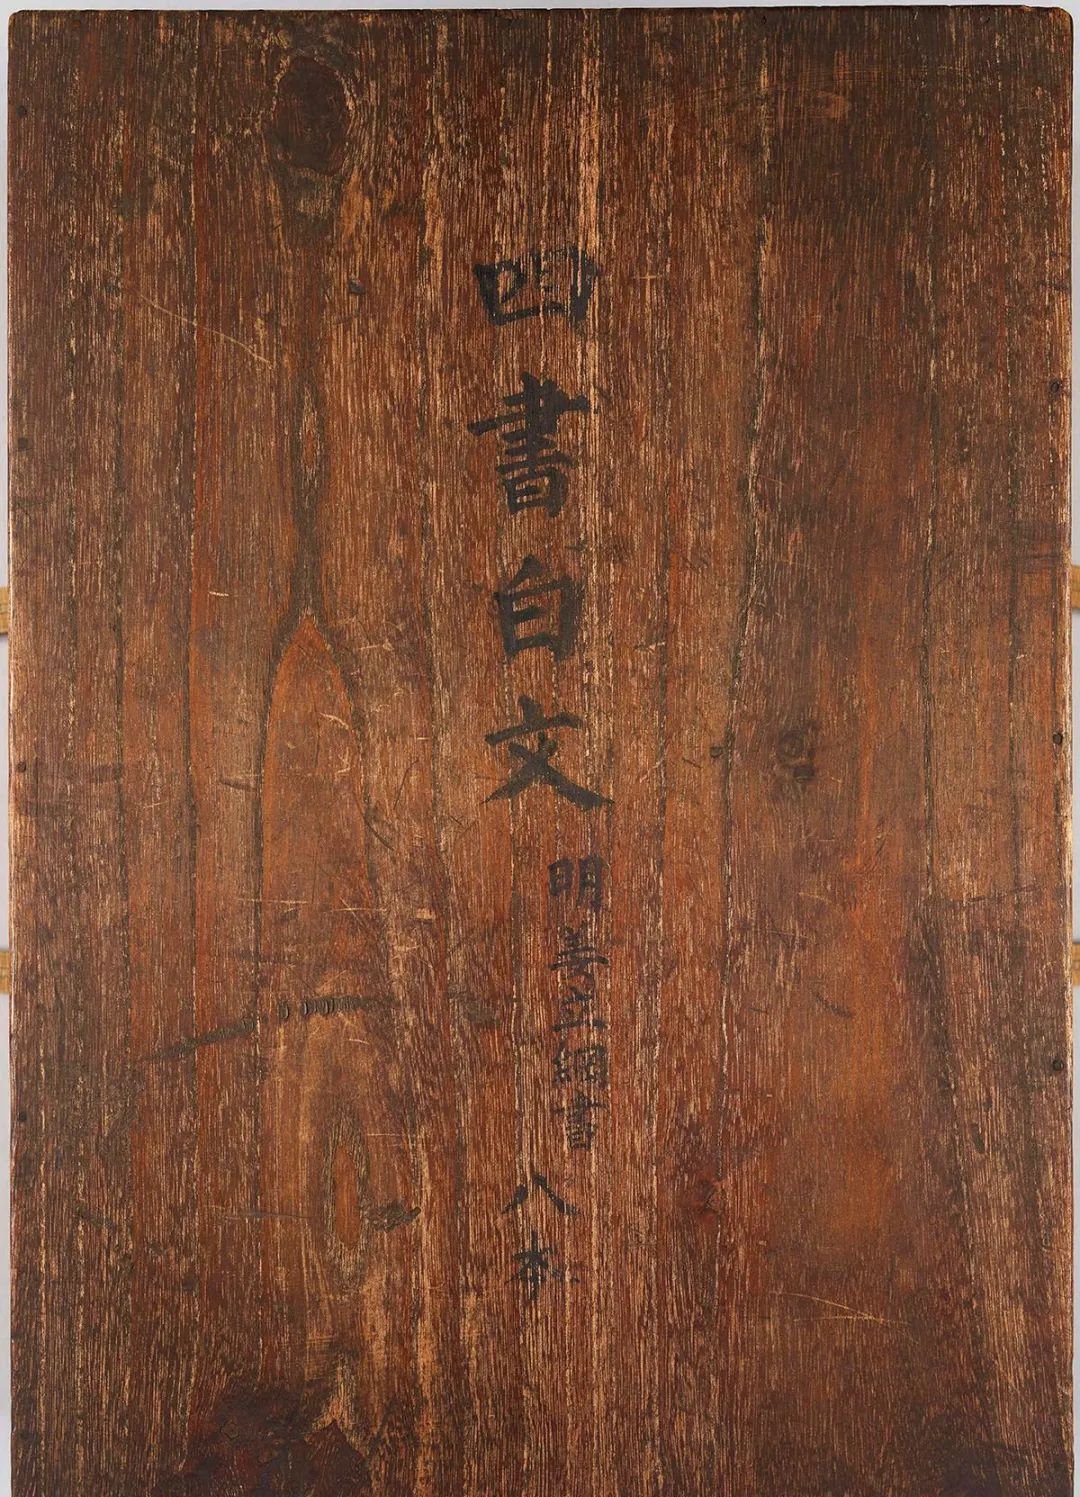 四書白文
明姜立綱書
八本